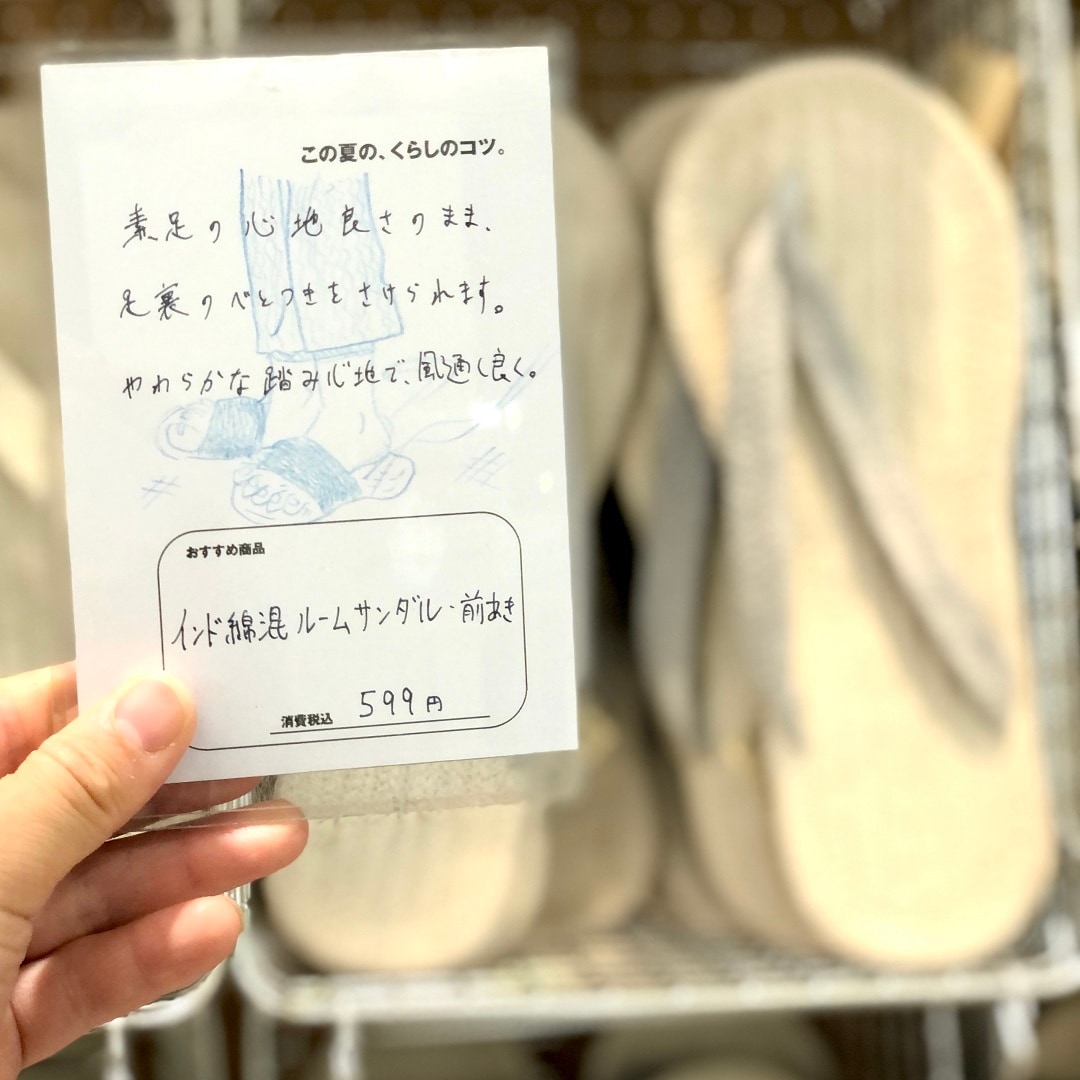 この夏の、くらしのコツ。
素足の心地良さのまま、
足裏のべとつきをさけられます。
やわらかな踏み心地で、風通し良く。
おすすめ商品
インド綿混ルームサンダル・前あき
消費税込 599円